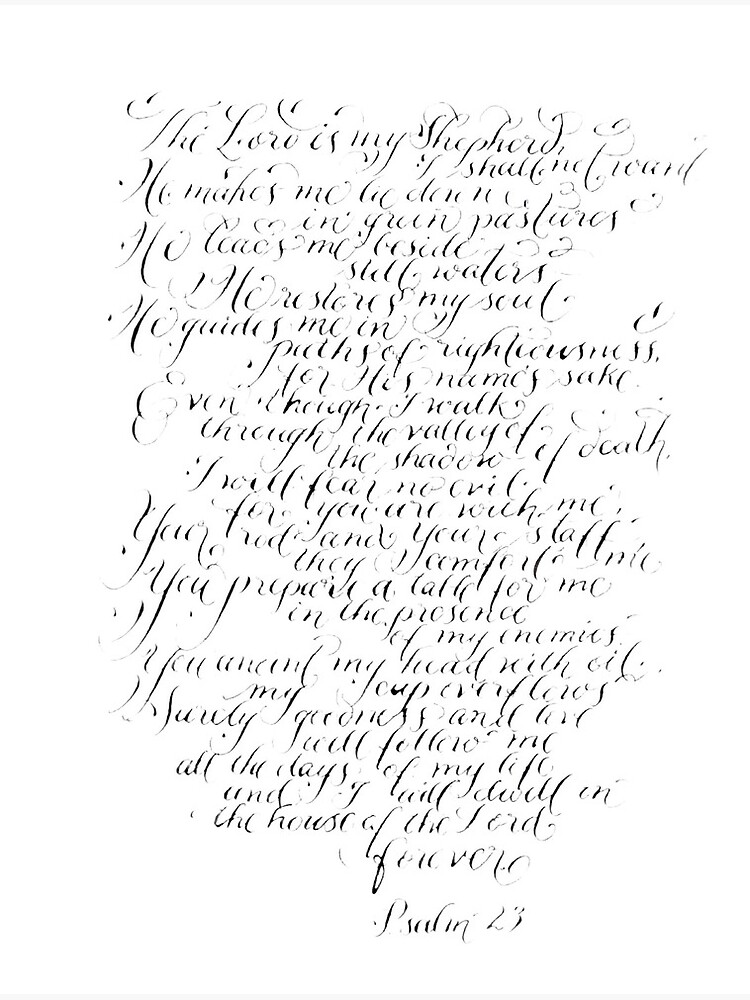 The Lord is my Shepherd,
I shall not want
He makes me lie down
in green pastures
He leads me beside
still waters
He restores my soul.
He guides me in
paths of righteousness,
for His name's sake.
Even though I walk
through the valley of
the shadow of death,
I will fear no evil.
for you are with me,
Your rod and your staff
they comfort me
You prepare a table for me
in the presence
of my enemies.
You anoint my head with oil.
my cup overflows
Surely goodness and love
will follow me
all the days of my life
and I will dwell in
the house of the Lord
forever.
Psalm 23